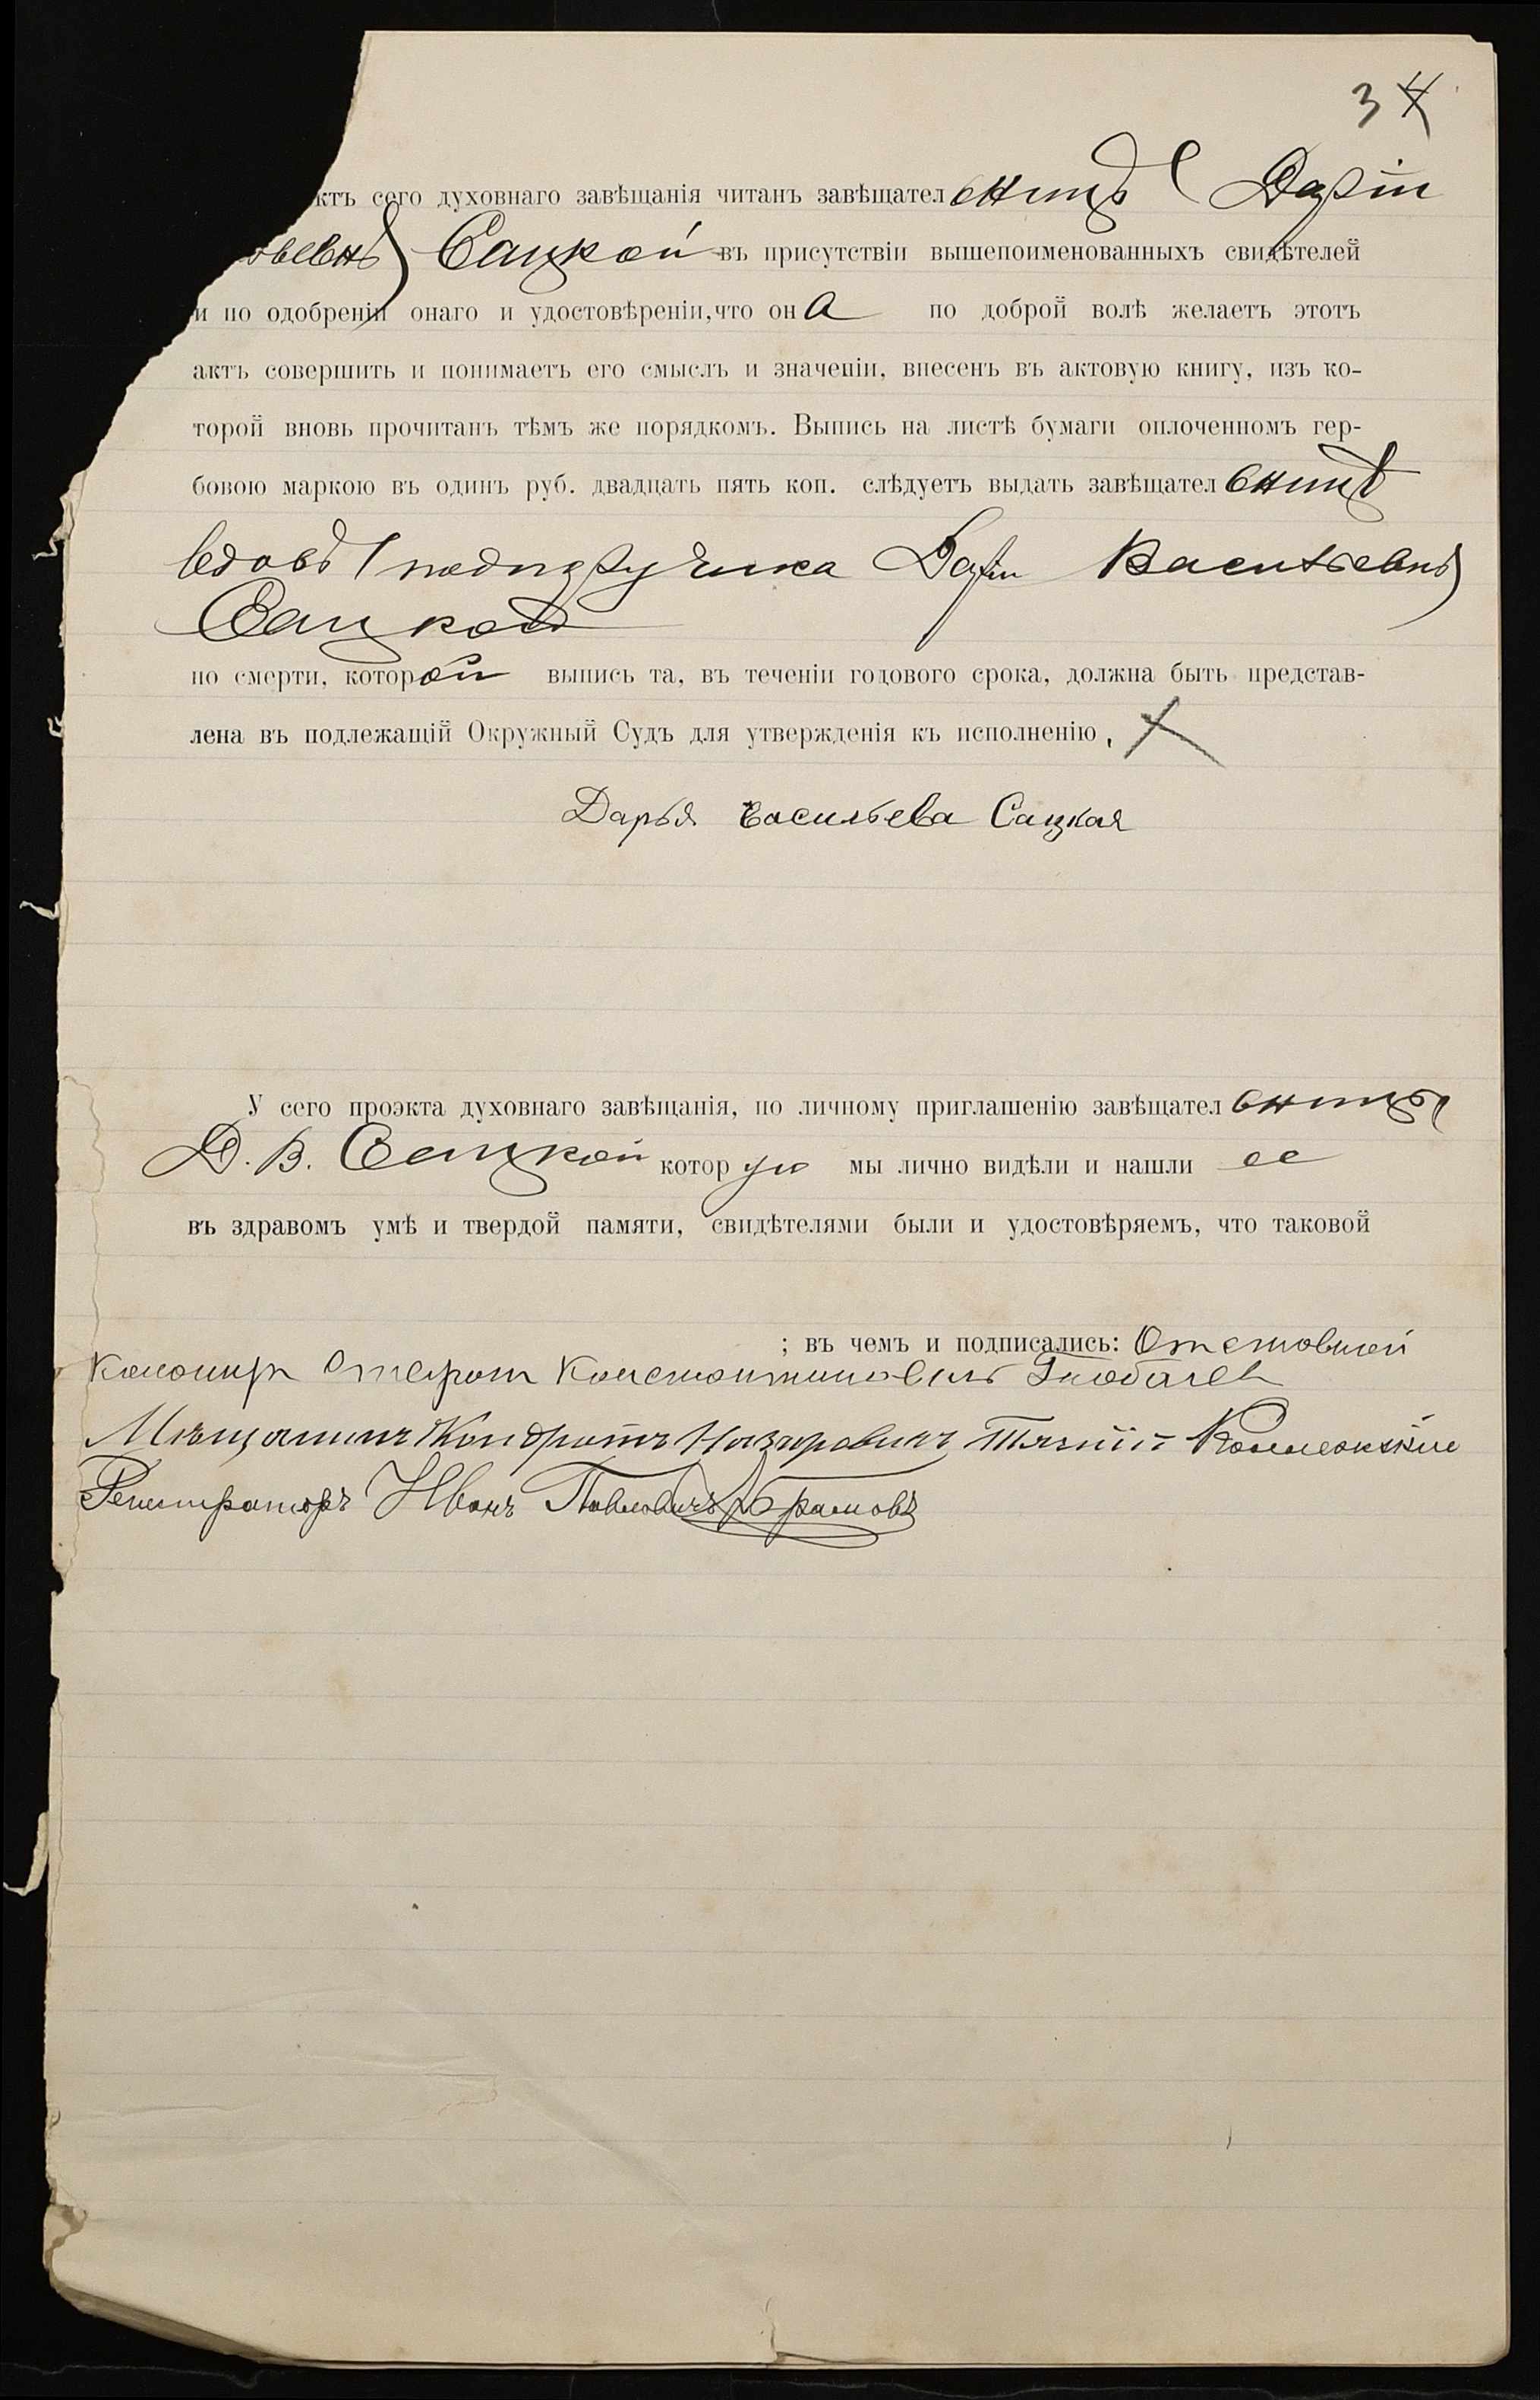 3 4
ктъ сего духовнаго завѣщанія читанъ завѣщательницѣ Даріи
ьевнѣ Сацкой въ присутствіи вышепоименованныхъ свидѣтелей
и по одобреніи онаго и удостовѣреніи, что она по доброй волѣ желаетъ этотъ
актъ совершить и понимаетъ его смыслъ и значеніи, внесенъ въ актовую книгу, изъ ко-
торой вновь прочитанъ тѣмъ же порядкомъ. Выпись на листѣ бумаги оплоченномъ гер-
бовою маркою въ одинъ руб. двадцать пять коп. слѣдуетъ выдать завѣщательницѣ
вдовѣ подпоручика Даріи Васильевнѣ
Сацкой
по смерти, которой выпись та, въ теченіи годового срока, должна быть представ-
лена въ подлежащій Окружный Судъ для утвержденія къ исполненію,
Дарья Васильева Сацкая
У сего проэкта духовнаго завѣщанія, по личному приглашенію завѣщательницы
Д. В. Сацкой которую мы лично видѣли и нашли ее
въ здравомъ умѣ и твердой памяти, свидѣтелями были и удостовѣряемъ, что таковой
; въ чемъ и подписались: Отставной
Константиновичъ
Мѣщанинъ Кондратъ Назаровичъ Коллежскій
Регистраторъ Иванъ Павловичъ Абрамовъ